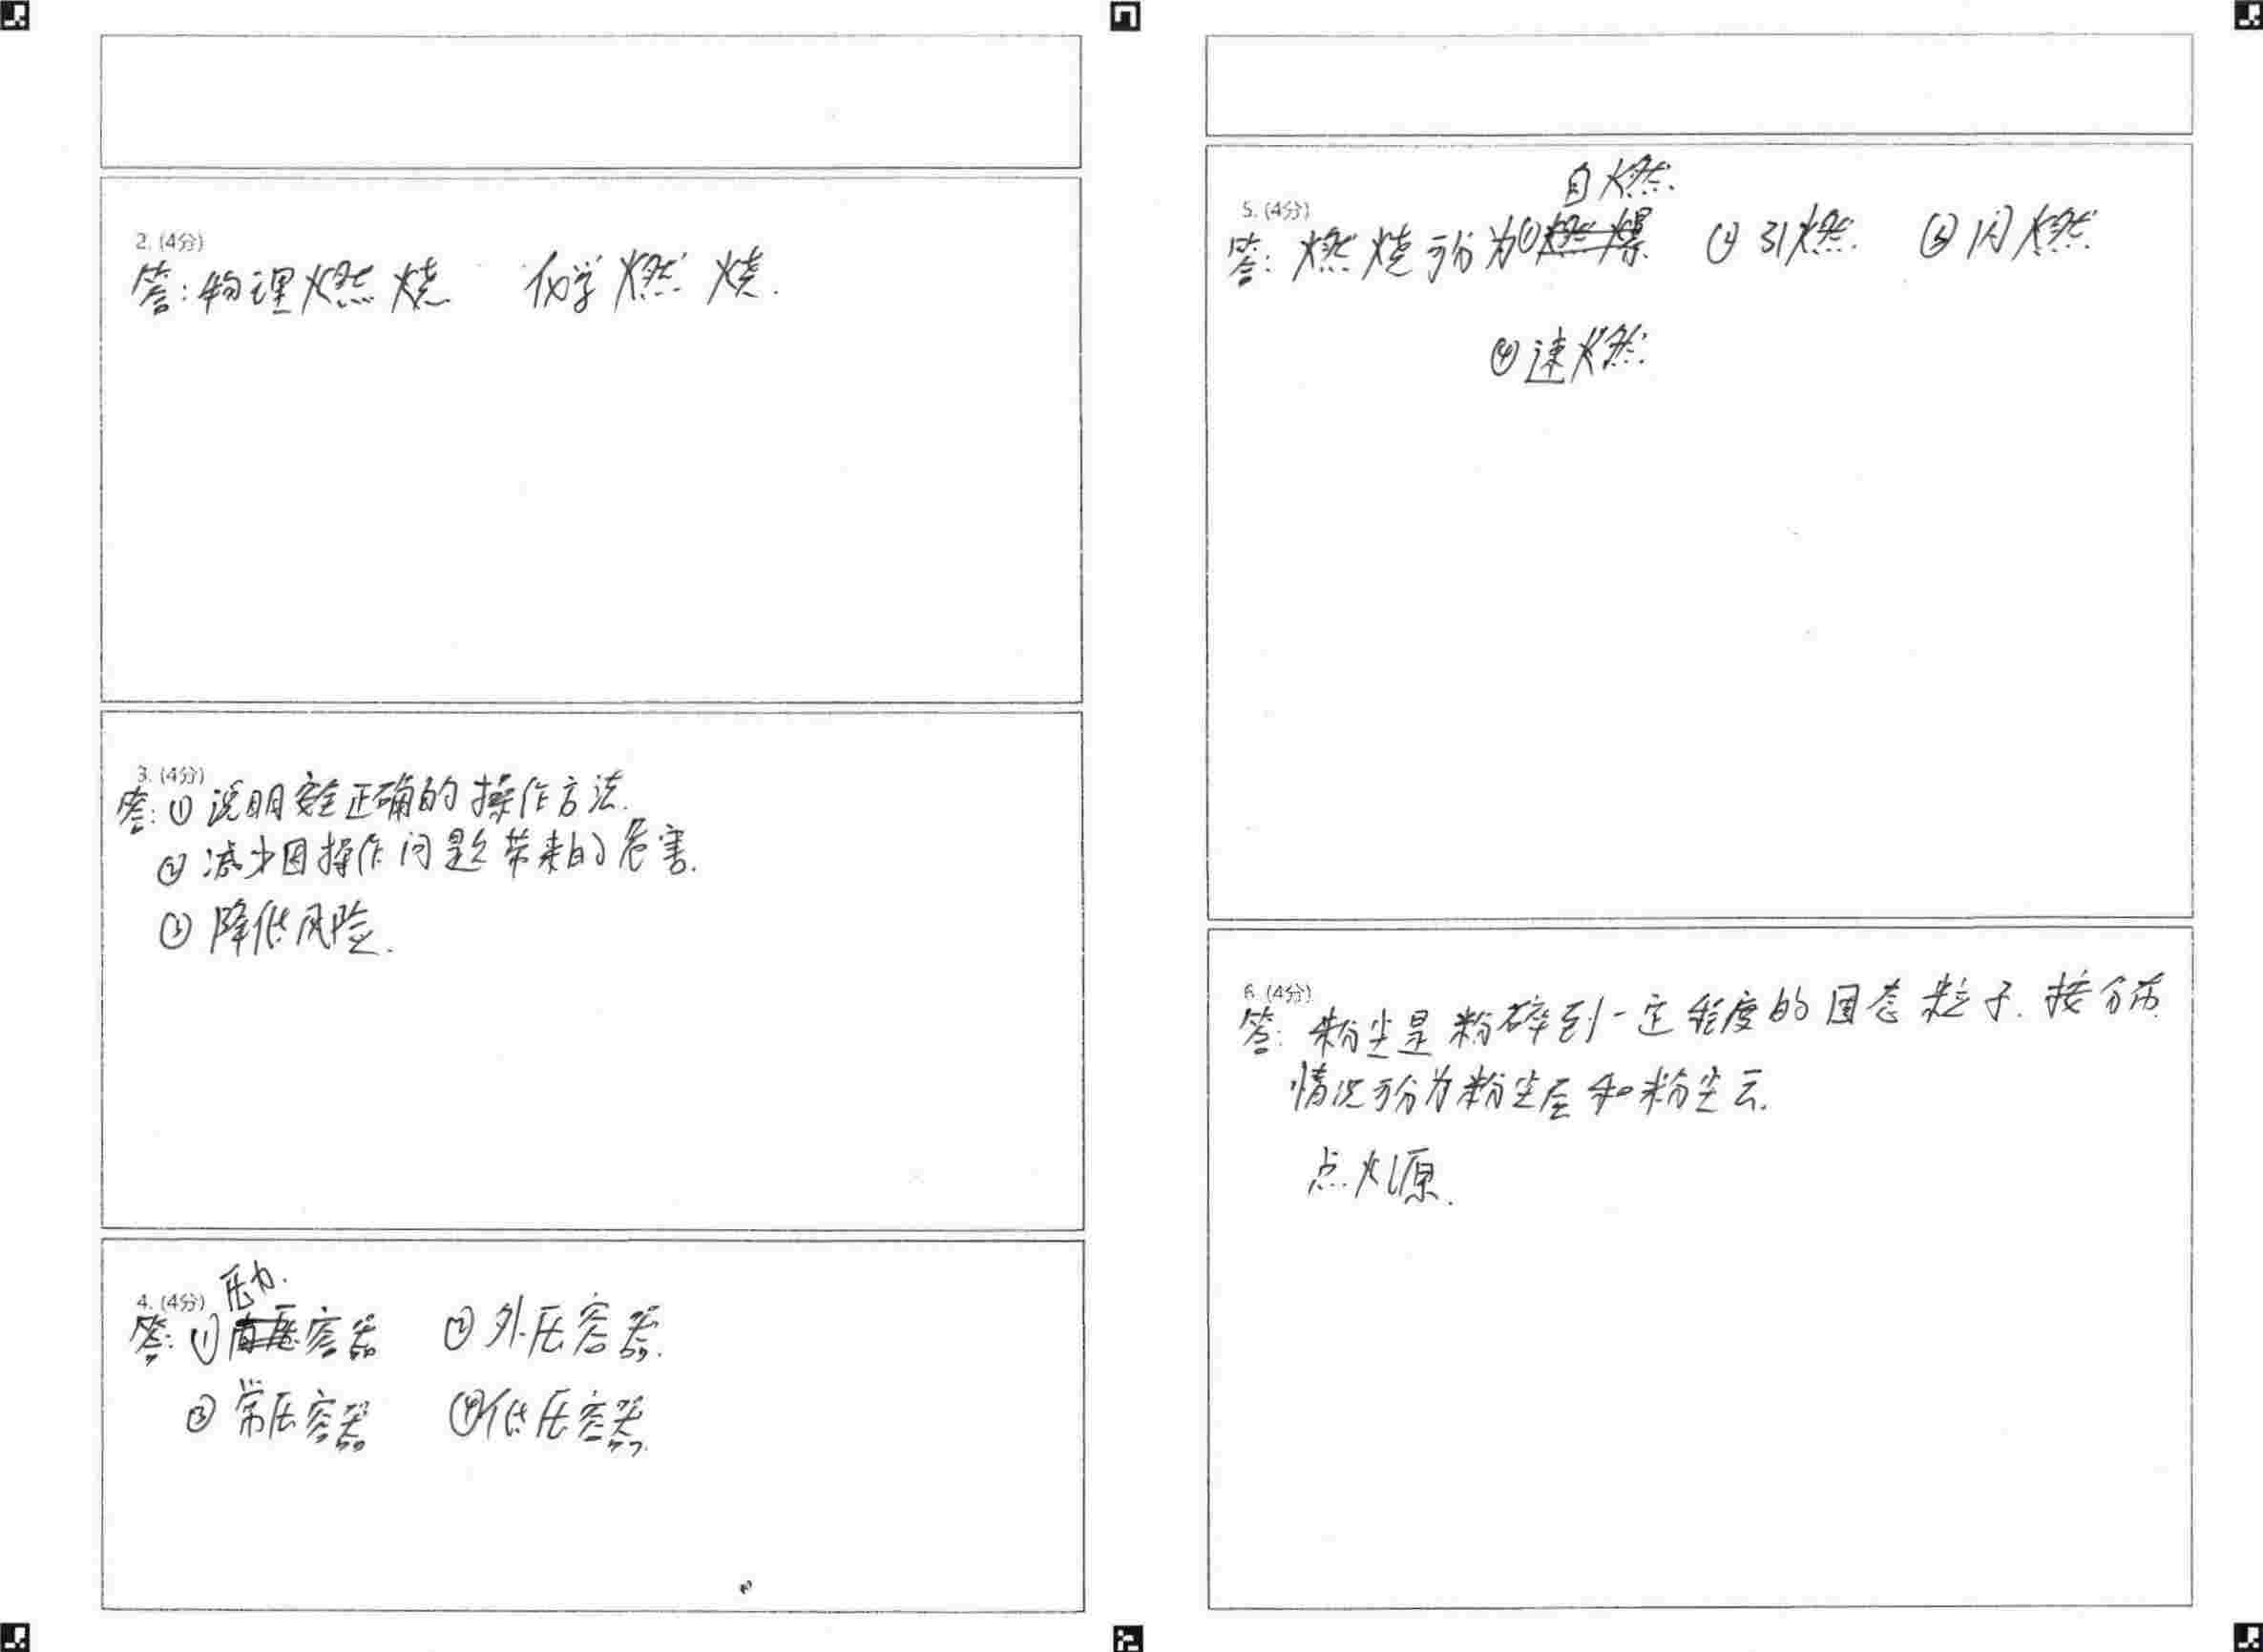 2. (4分)
答：物理燃烧 化学燃烧.
3. (4分)
答：① 说明安全正确的操作方法.
② 减少因操作问题带来的危害.
③ 降低风险.
4. (4分)
压力.
答：① 容器 ② 外压容器.
③ 常压容器 ④ 低压容器.
5. (4分)
自燃.
答：燃烧可分为① 燃爆 ② 引燃. ③ 闪燃
④ 速燃
6. (4分)
答：粉尘是粉碎到一定程度的固态粒子. 按分布
情况可分为粉尘层和粉尘云.
点火源.